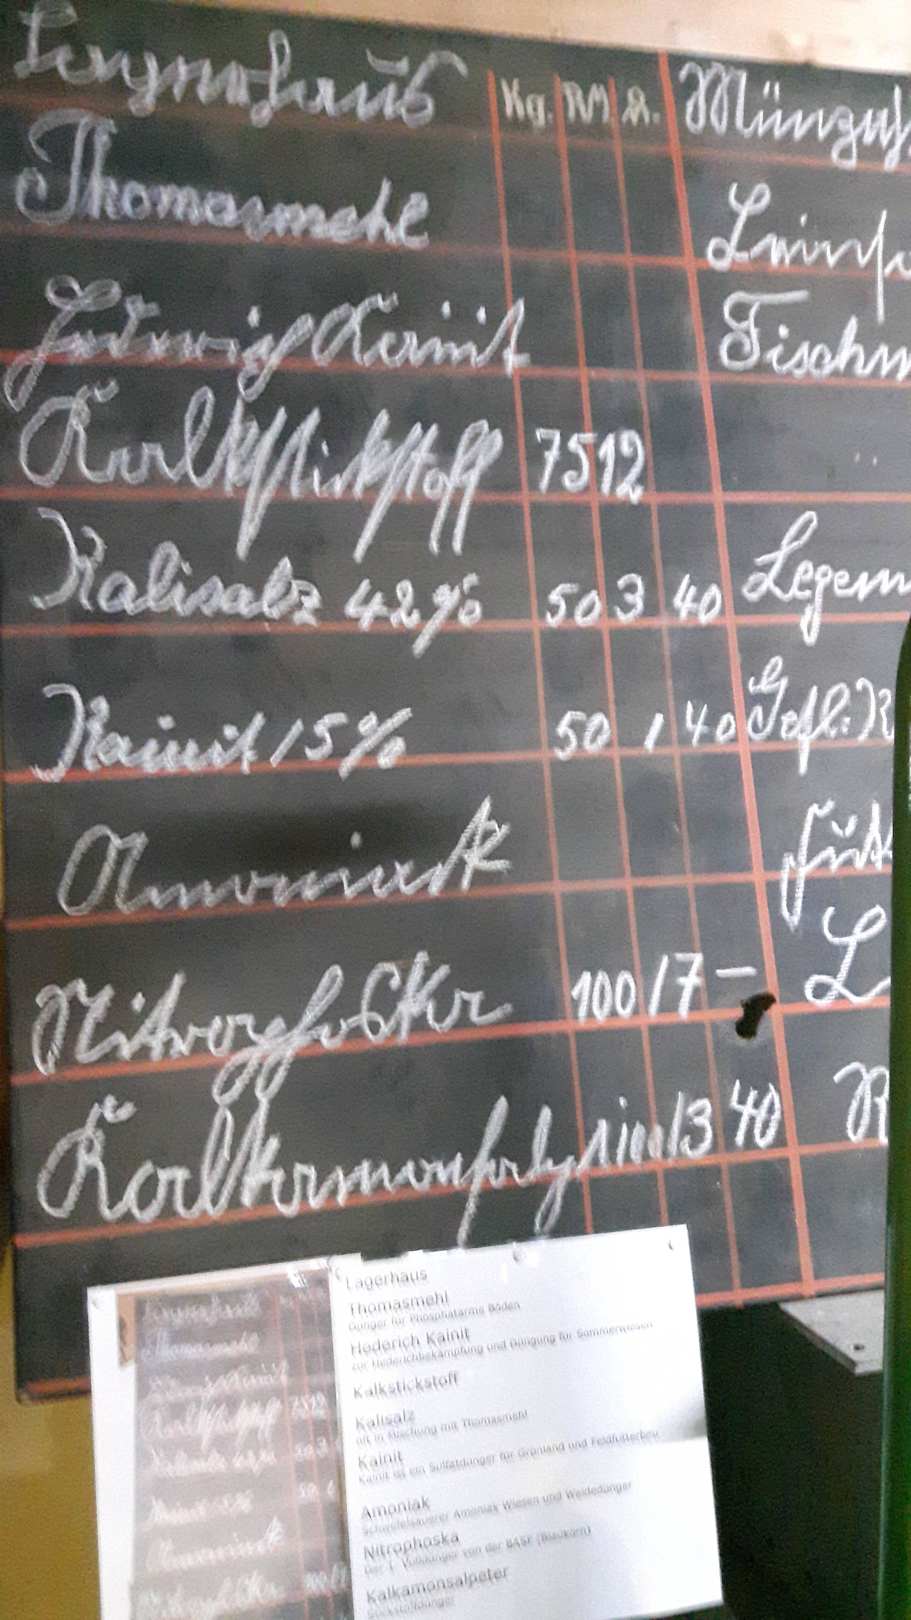 Lagerhaus Kg. RM ₰.
Thomasmehl
Hederich Kainit
Fischm
Kalkstickstoff 75 12
Kalisalz 42% 50 3 40
Legem
Kainit 15% 50 1 40
Amoniak
Nitrophoska 100 17 —
Kalkamonsalpeter 100 13 40
Lagerhaus
Thomasmehl
Dünger für Phosphatarme Böden
Hederich Kainit
zur Hederichbekämpfung und Düngung für Sommerweizen
Kalkstickstoff
Kalisalz
oft in Mischung mit Thomasmehl
Kainit
Kainit ist ein Sulfatdünger für Grünland und Feldfutterbau
Amoniak
Schwefelsaurer Amoniak Wiesen und Weidedünger
Nitrophoska
Der 1. Volldünger von der BASF (Blaukorn)
Kalkamonsalpeter
Stickstoffdünger